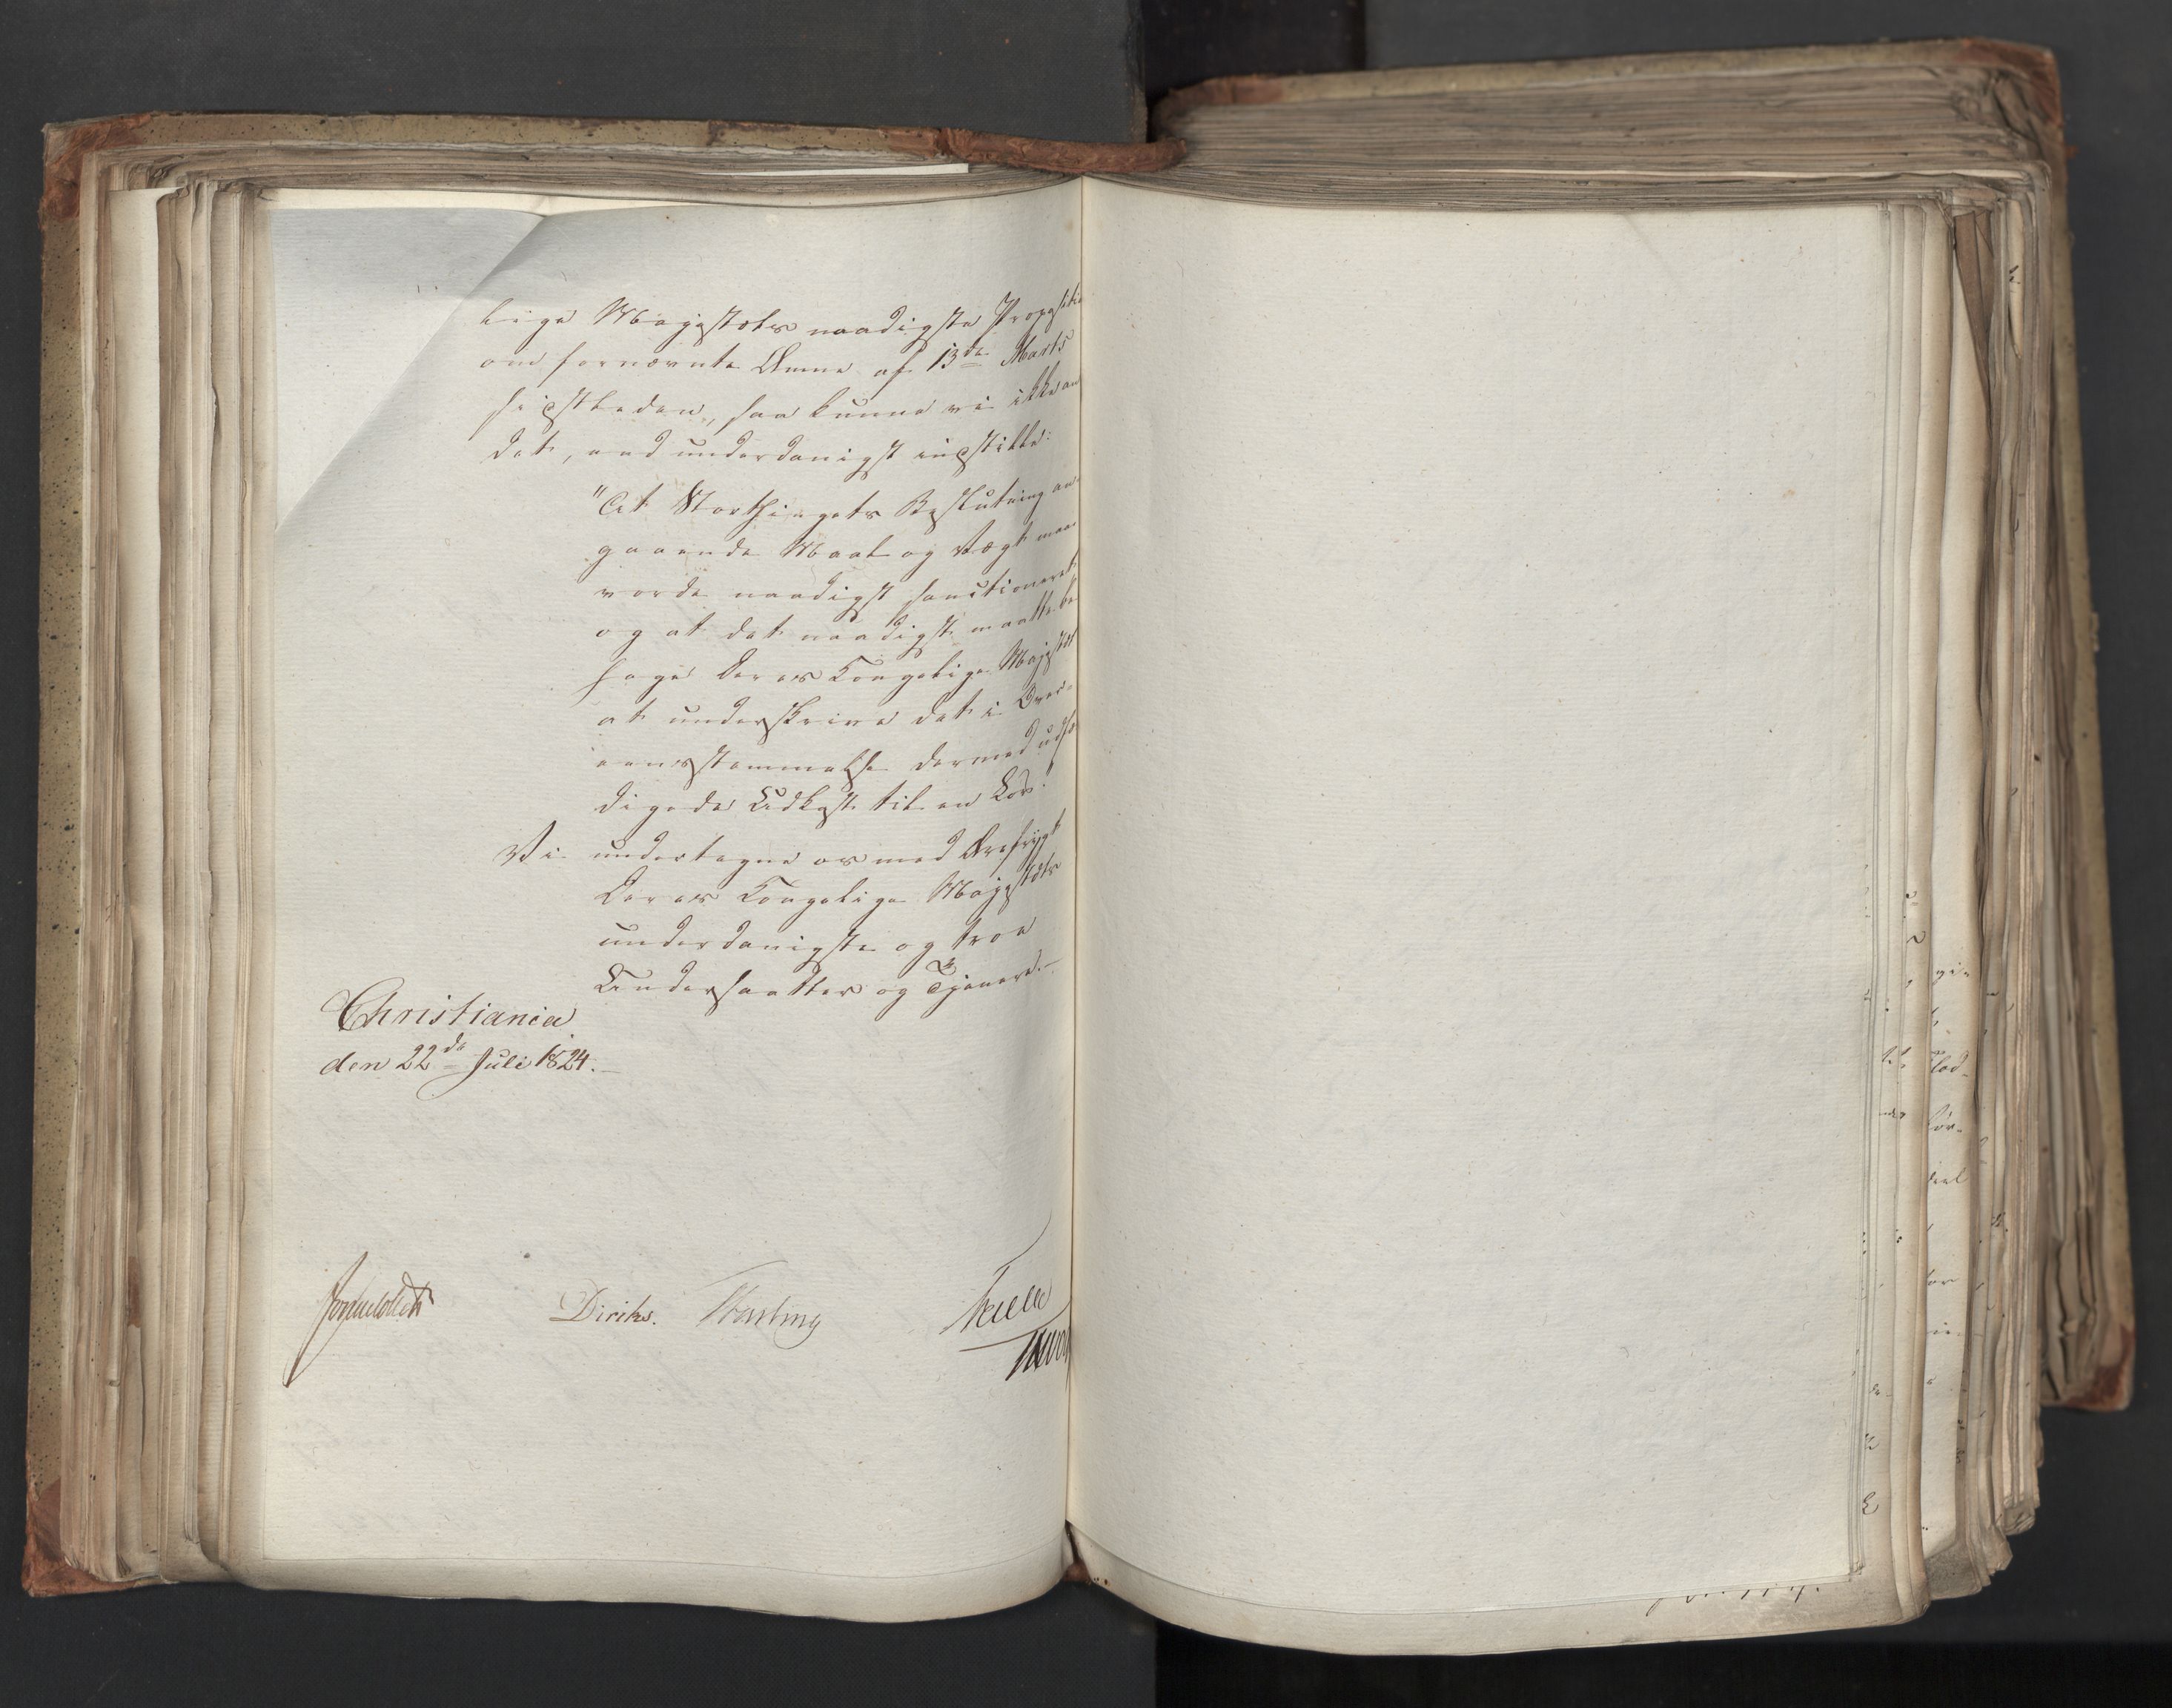 lige Majestæts naadigste Propositi
om fornævnte Æmne af 13de Marts
sidstleden, saa kunne vi ikke an
det, end underdanigst indstille:
"At Storthingets Beslutning an-
gaaende Maal og Vægt maa
vorde naadigst sanctioneret
og at det naadigst maatte be
hage Deres Kongelige Majestæt
at underskrive det i Over-
eensstemmelse dermed udfær
digede Udkast til en Lov."
Vi undertegne os med Ærefrygt
Deres Kongelige Majestæts
underdanigste og troe
Undersaatter og Tjenere.-
Christiania
den 22de Juli 1824.-
Diriks.